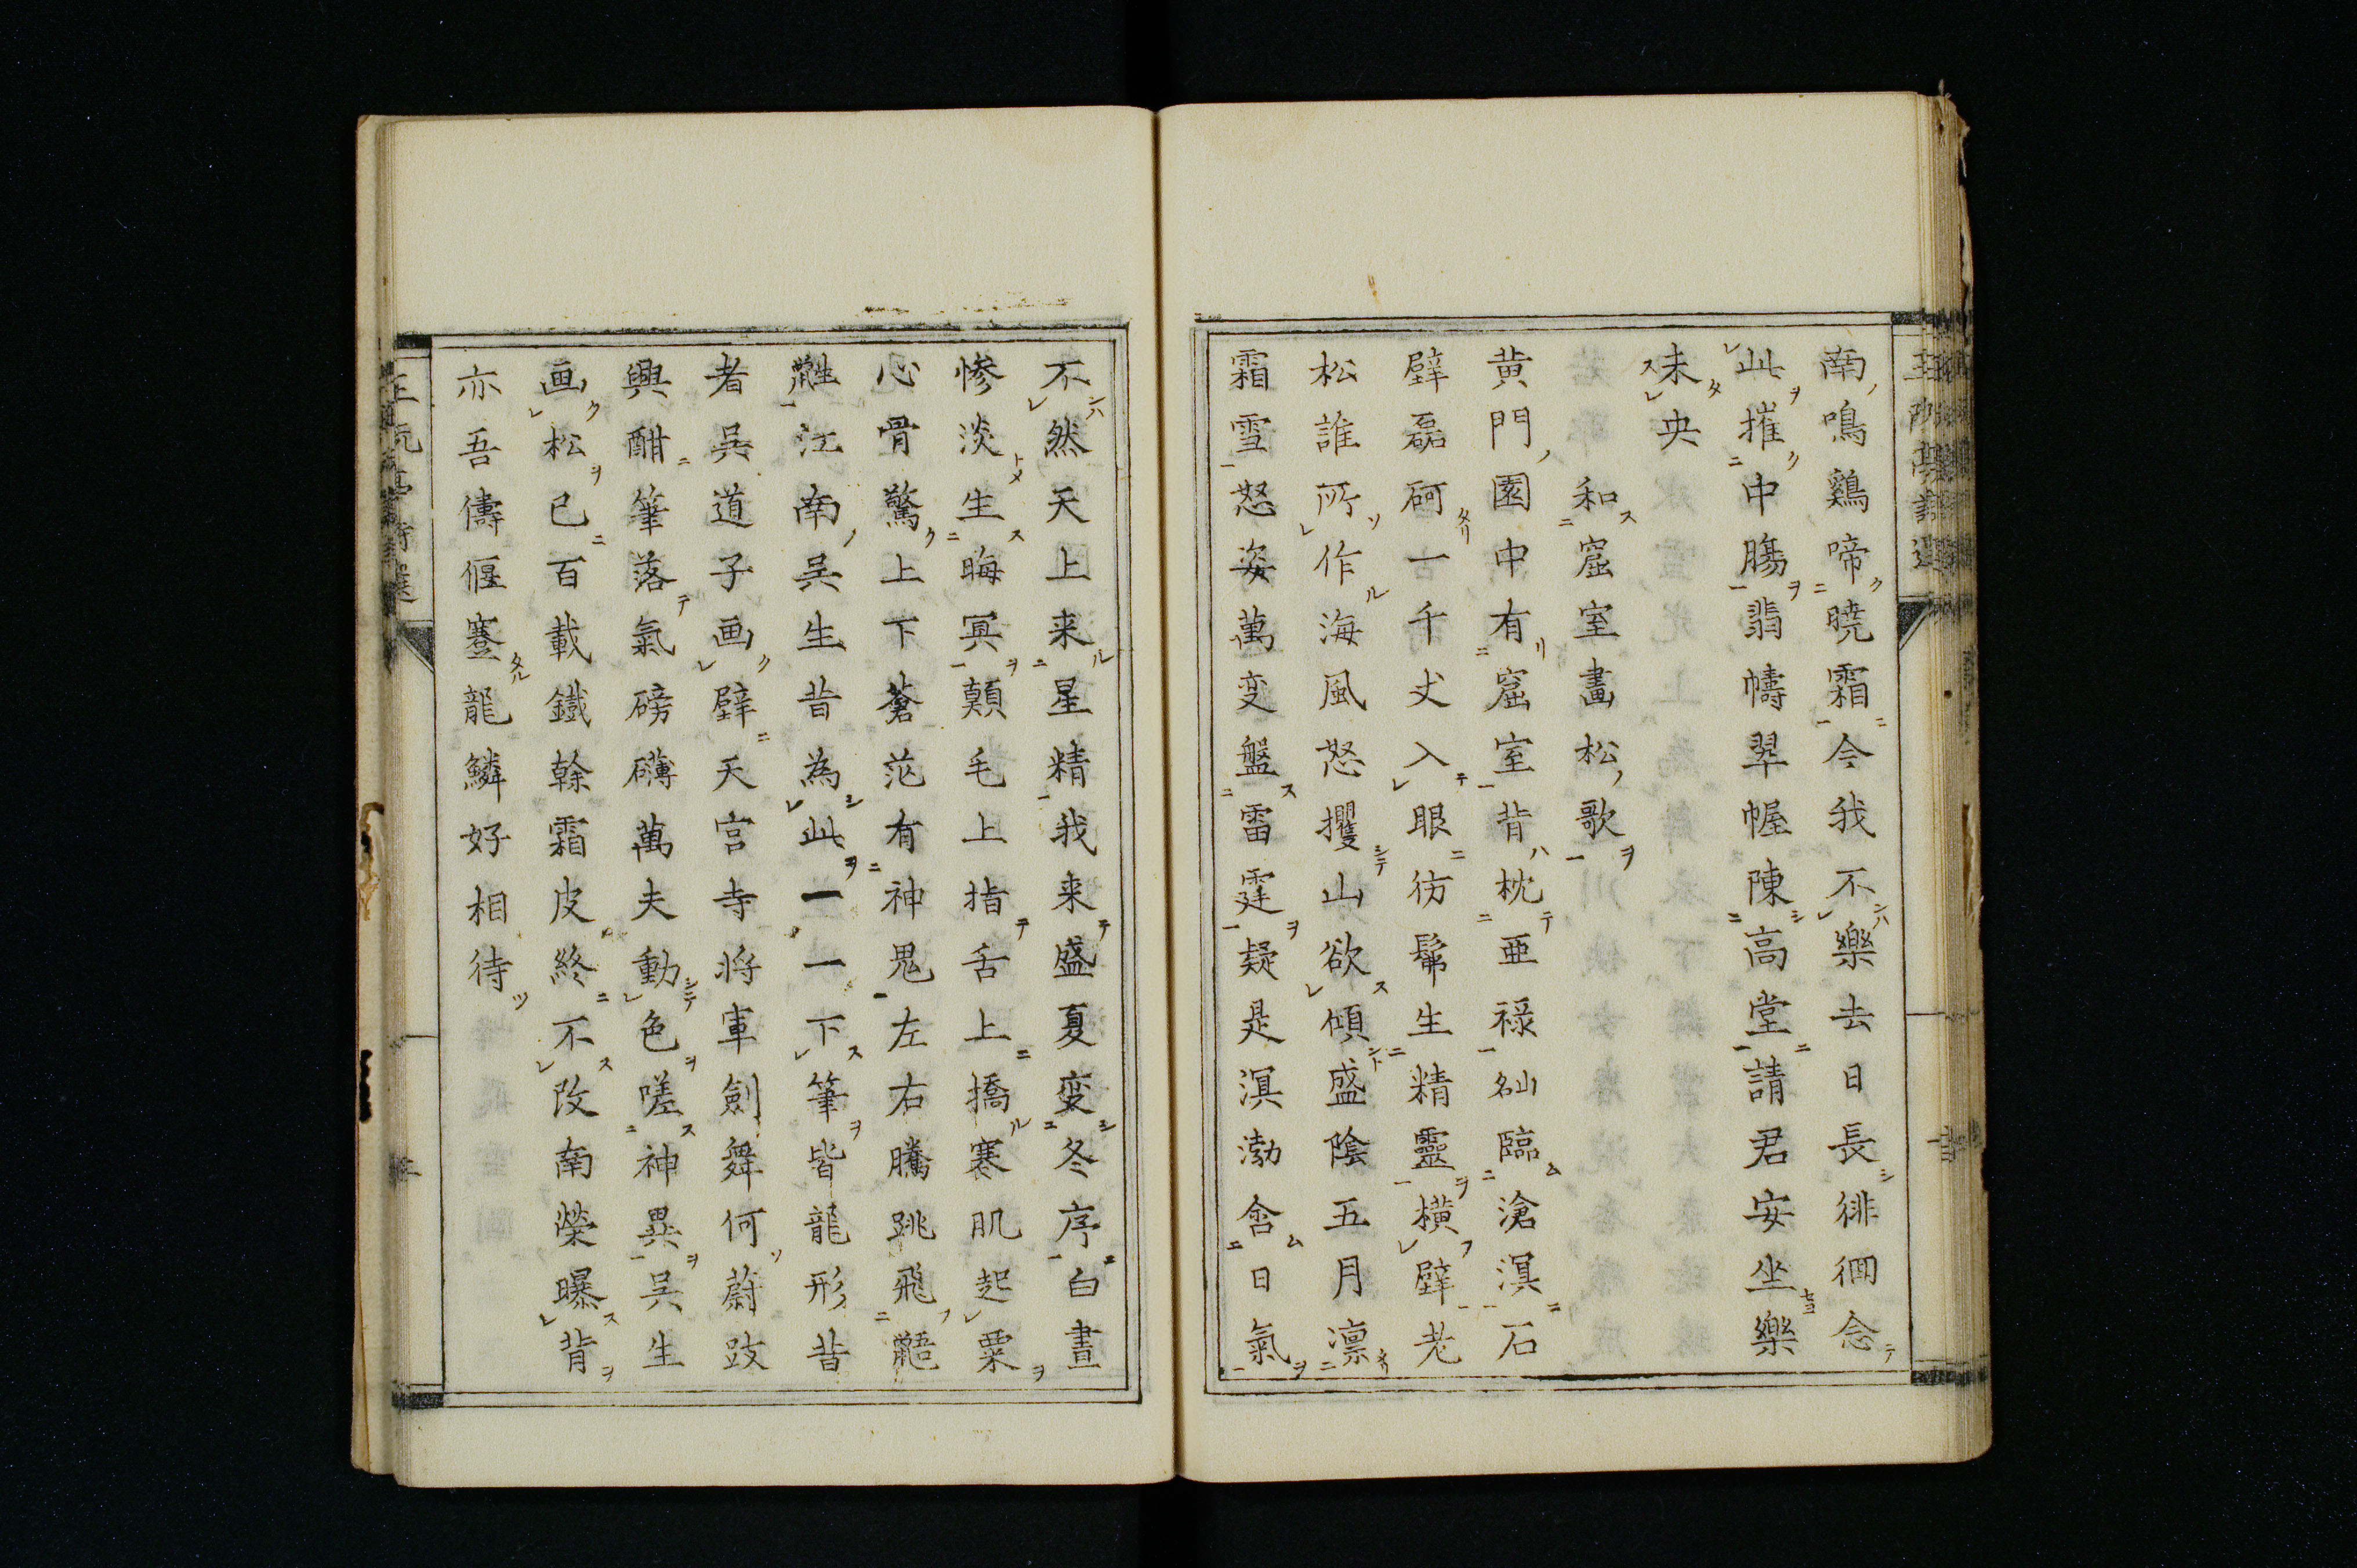 南鳴鷄啼曉霜今我不樂去日長徘徊念
此摧中腸翡幬翠幄陳高堂請君安坐樂
未央
和窟室畫松歌
黄門園中有窟室背枕亜禄仙臨滄溟石
壁磊砢一千丈入眼彷髴生精靈横壁老
松誰所作海風怒攫山欲傾盛陰五月凛
霜雪怒姿萬変盤雷霆疑是溟渤含日氣
不然天上来星精我来盛夏変冬序白晝
惨淡生晦冥顛毛上指舌上撟寒肌起粟
心骨驚上下蒼茫有神鬼左右騰跳飛鼯
鼪江南呉生昔為此一一下筆皆龍形昔
者呉道子画壁天宫寺将軍劍舞何蔚跂
興酣筆落氣磅礴萬夫動色嗟神異呉生
画松已百載鐵榦霜皮終不改南榮曝背
亦吾儔偃蹇龍鱗好相待